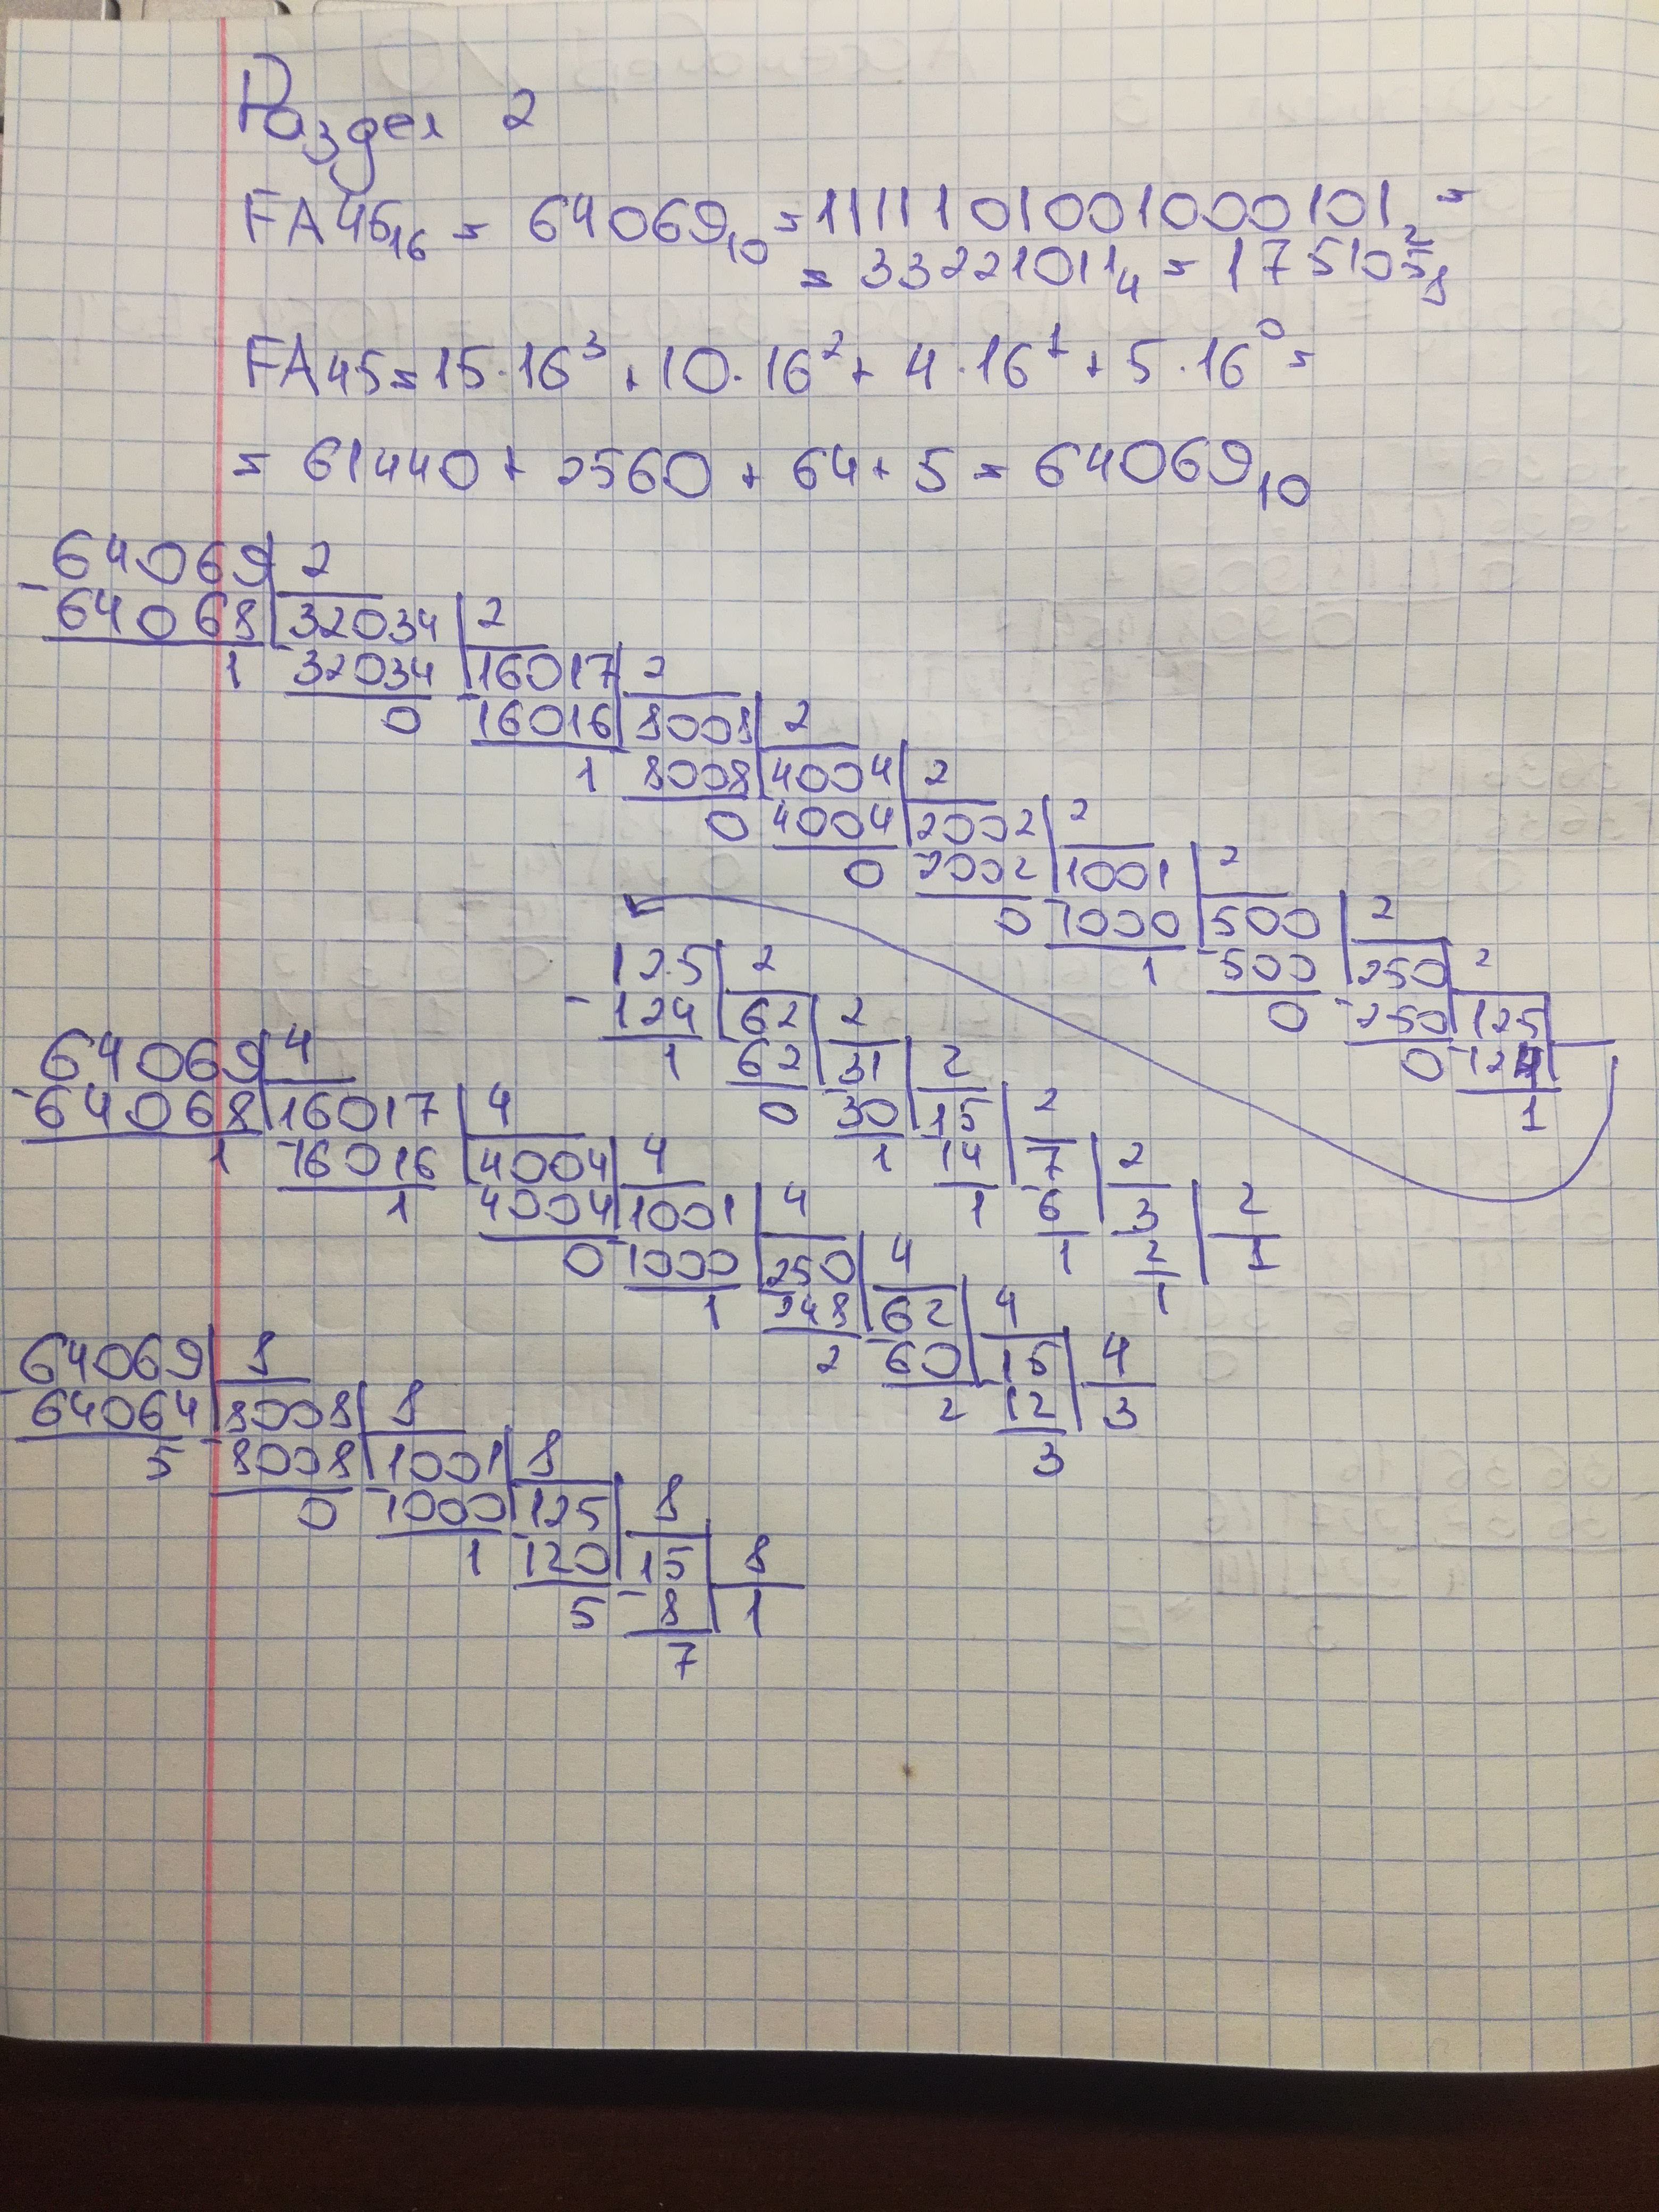 Раздел 2
FA45₁₆ = 64069₁₀ = 1111101001000101₂ =
= 33221011₄ = 175105₈
FA45 = 15·16³ + 10·16² + 4·16¹ + 5·16⁰ =
= 61440 + 2560 + 64 + 5 = 64069₁₀
64069 2
-64068 32034 2
1 32034 16017 2
0 -16016 8008 2
1 8008 4004 2
0 4004 2002 2
0 2002 1001 2
0 -1000 500 2
1 -500 250 2
0 -250 125
0 -124
1
125 2
-124 62 2
1 62 31 2
0 -30 15 2
1 14 7 2
1 -6 3 2
1 2 1
1
64069 4
-64068 16017 4
1 -16016 4004 4
1 4004 1001 4
0 -1000 250 4
1 248 62 4
2 -60 15 4
2 -12 3
3
64069 8
-64064 8008 8
5 -8008 1001 8
0 -1000 125 8
1 -120 15 8
5 -8 1
7